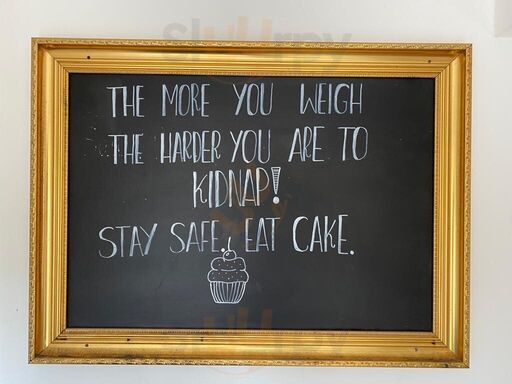 THE MORE YOU WEIGH
THE HARDER YOU ARE TO
KIDNAP!
STAY SAFE. EAT CAKE.